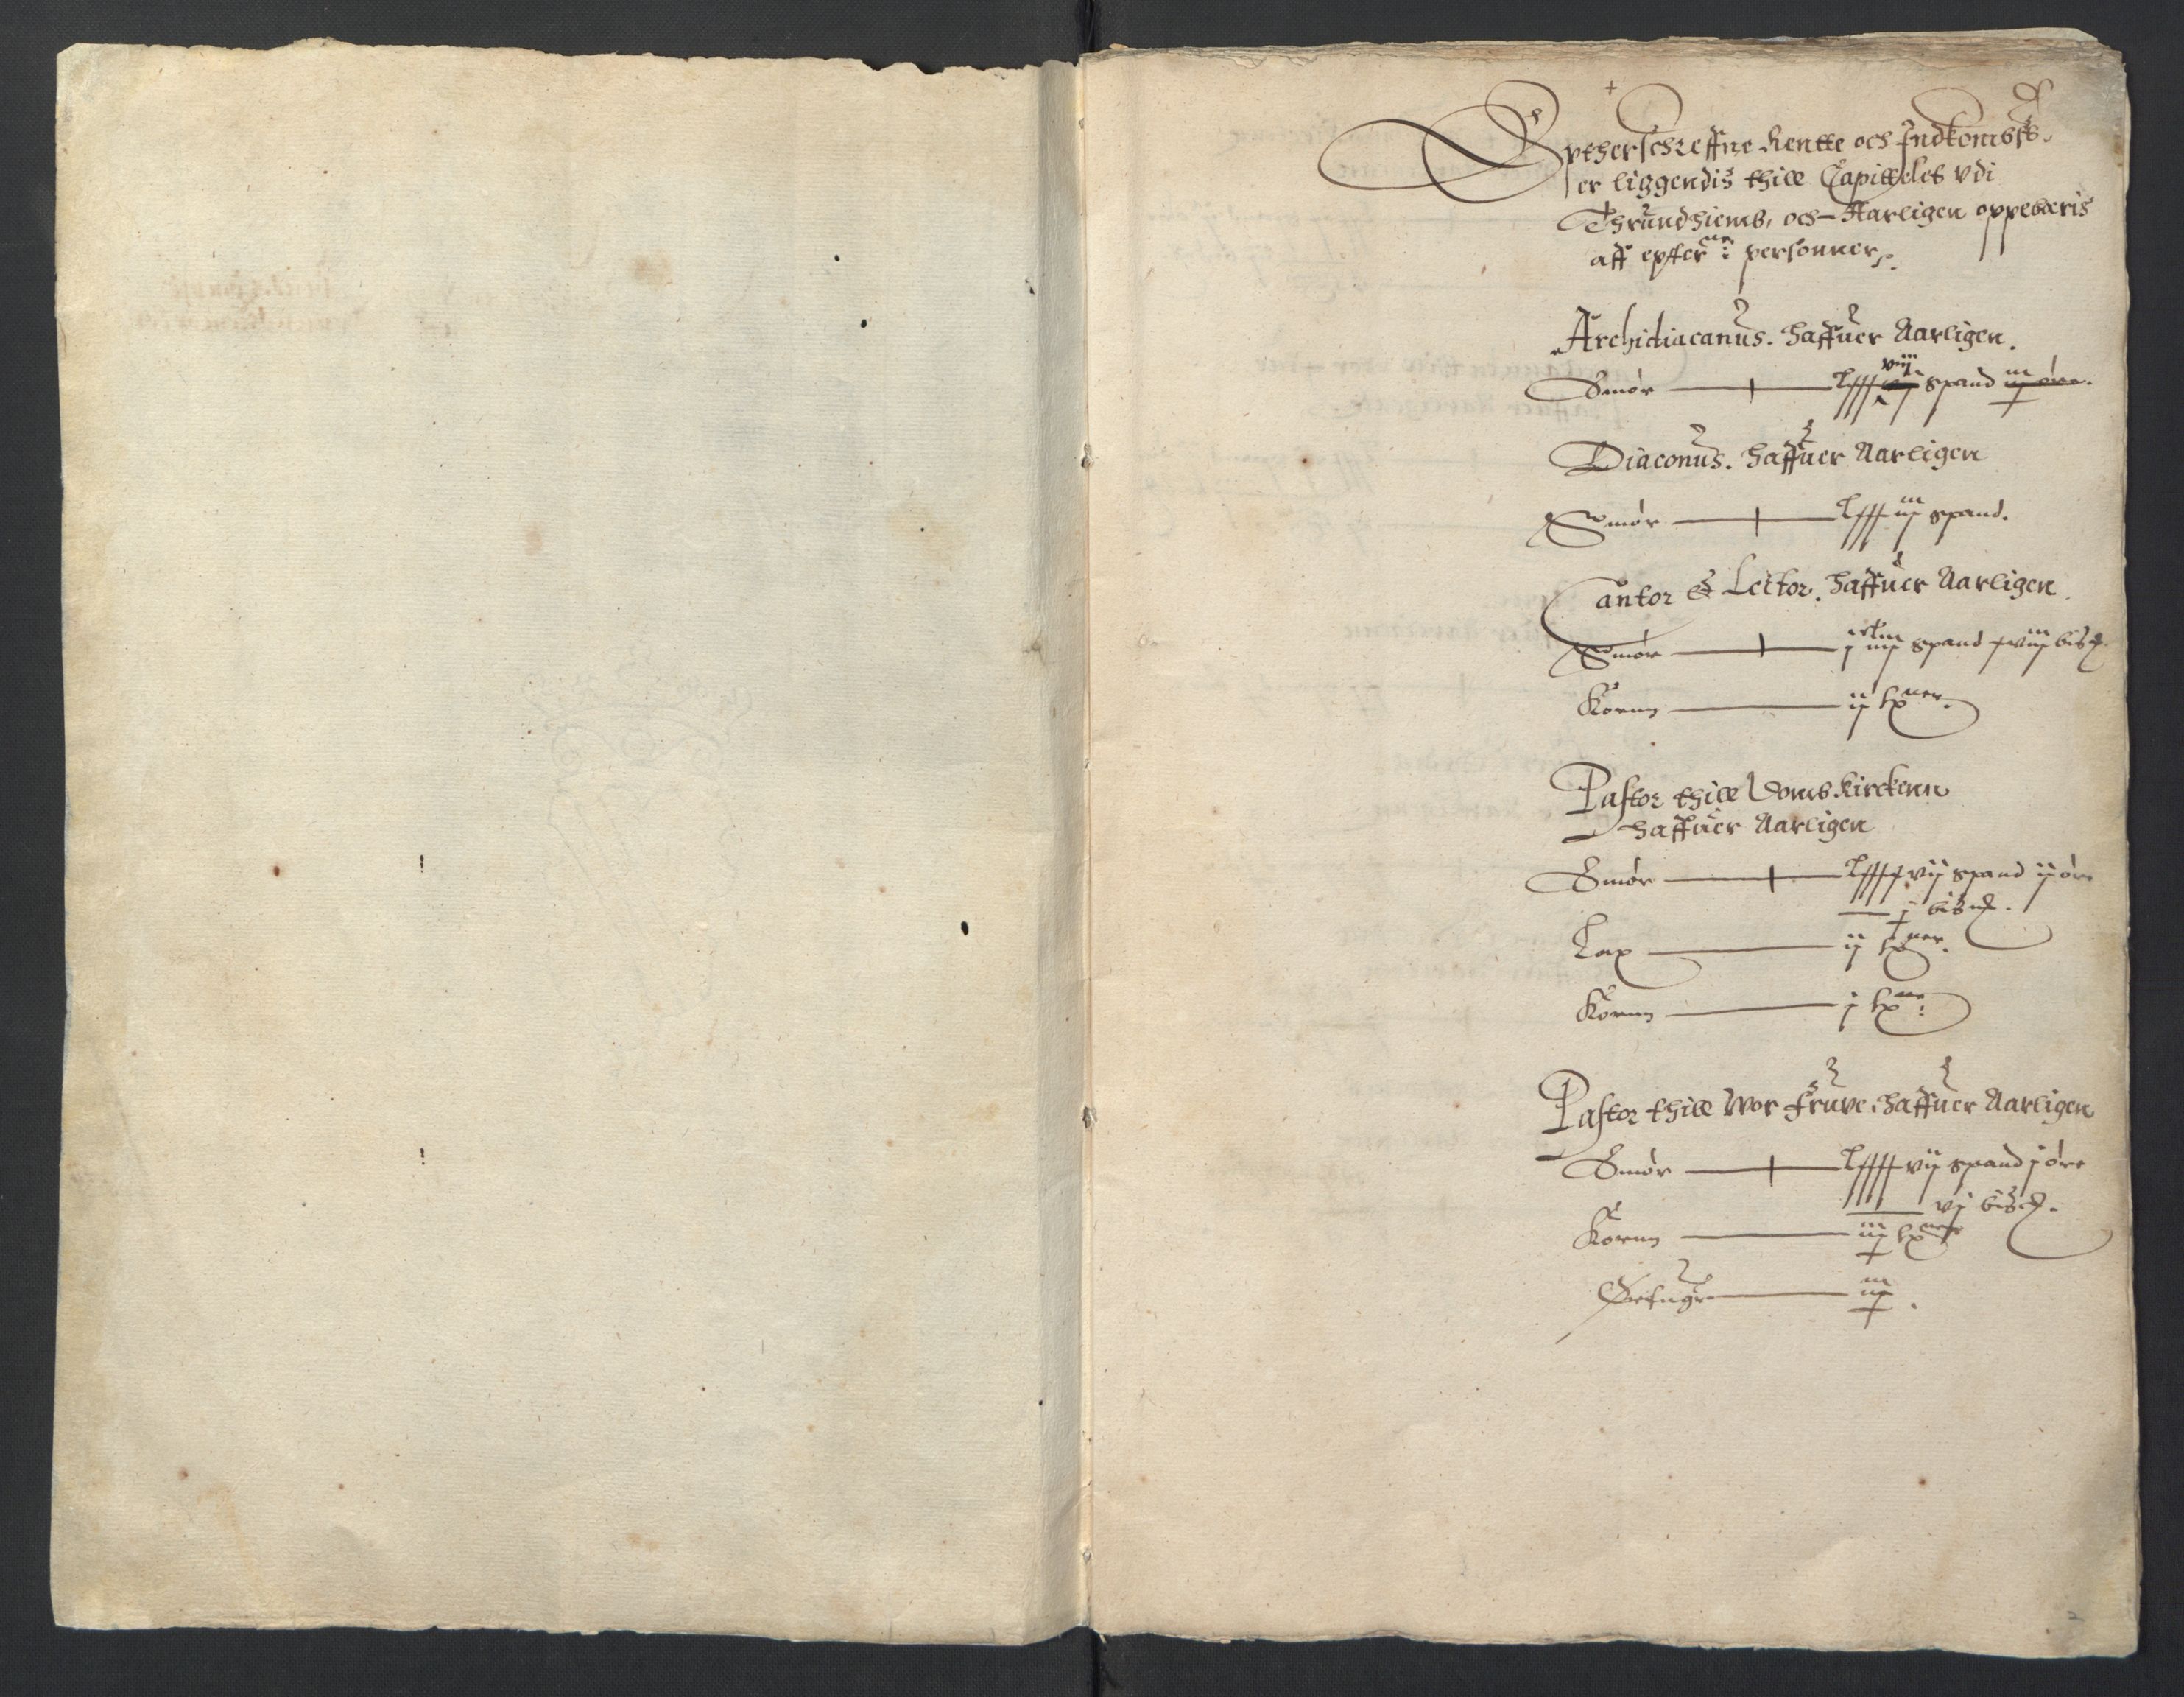 Eptherschreffne Rentte och Indkombst
er liggendis thill Capittelet vdi
Thrundhiemb, och Aarligen oppebæris
aff epter:ne personner.
Archidiacanus. haffuer Aarligen.
Smør spand
Diaconus. haffuer Aarligen
Smør lxxx iiij spand.
Cantor & Lector. haffuer Aarligen
Smør spand
Korun ij
Pastor thill Domb Kirckenn
haffuer Aarligen
Smør lxxxx vij spand ij øre
Lax ij
Korun j
Pastor thill Wor Frue. haffuer Aarligen
Smør lxxxx vij spand j øre
Korun iij